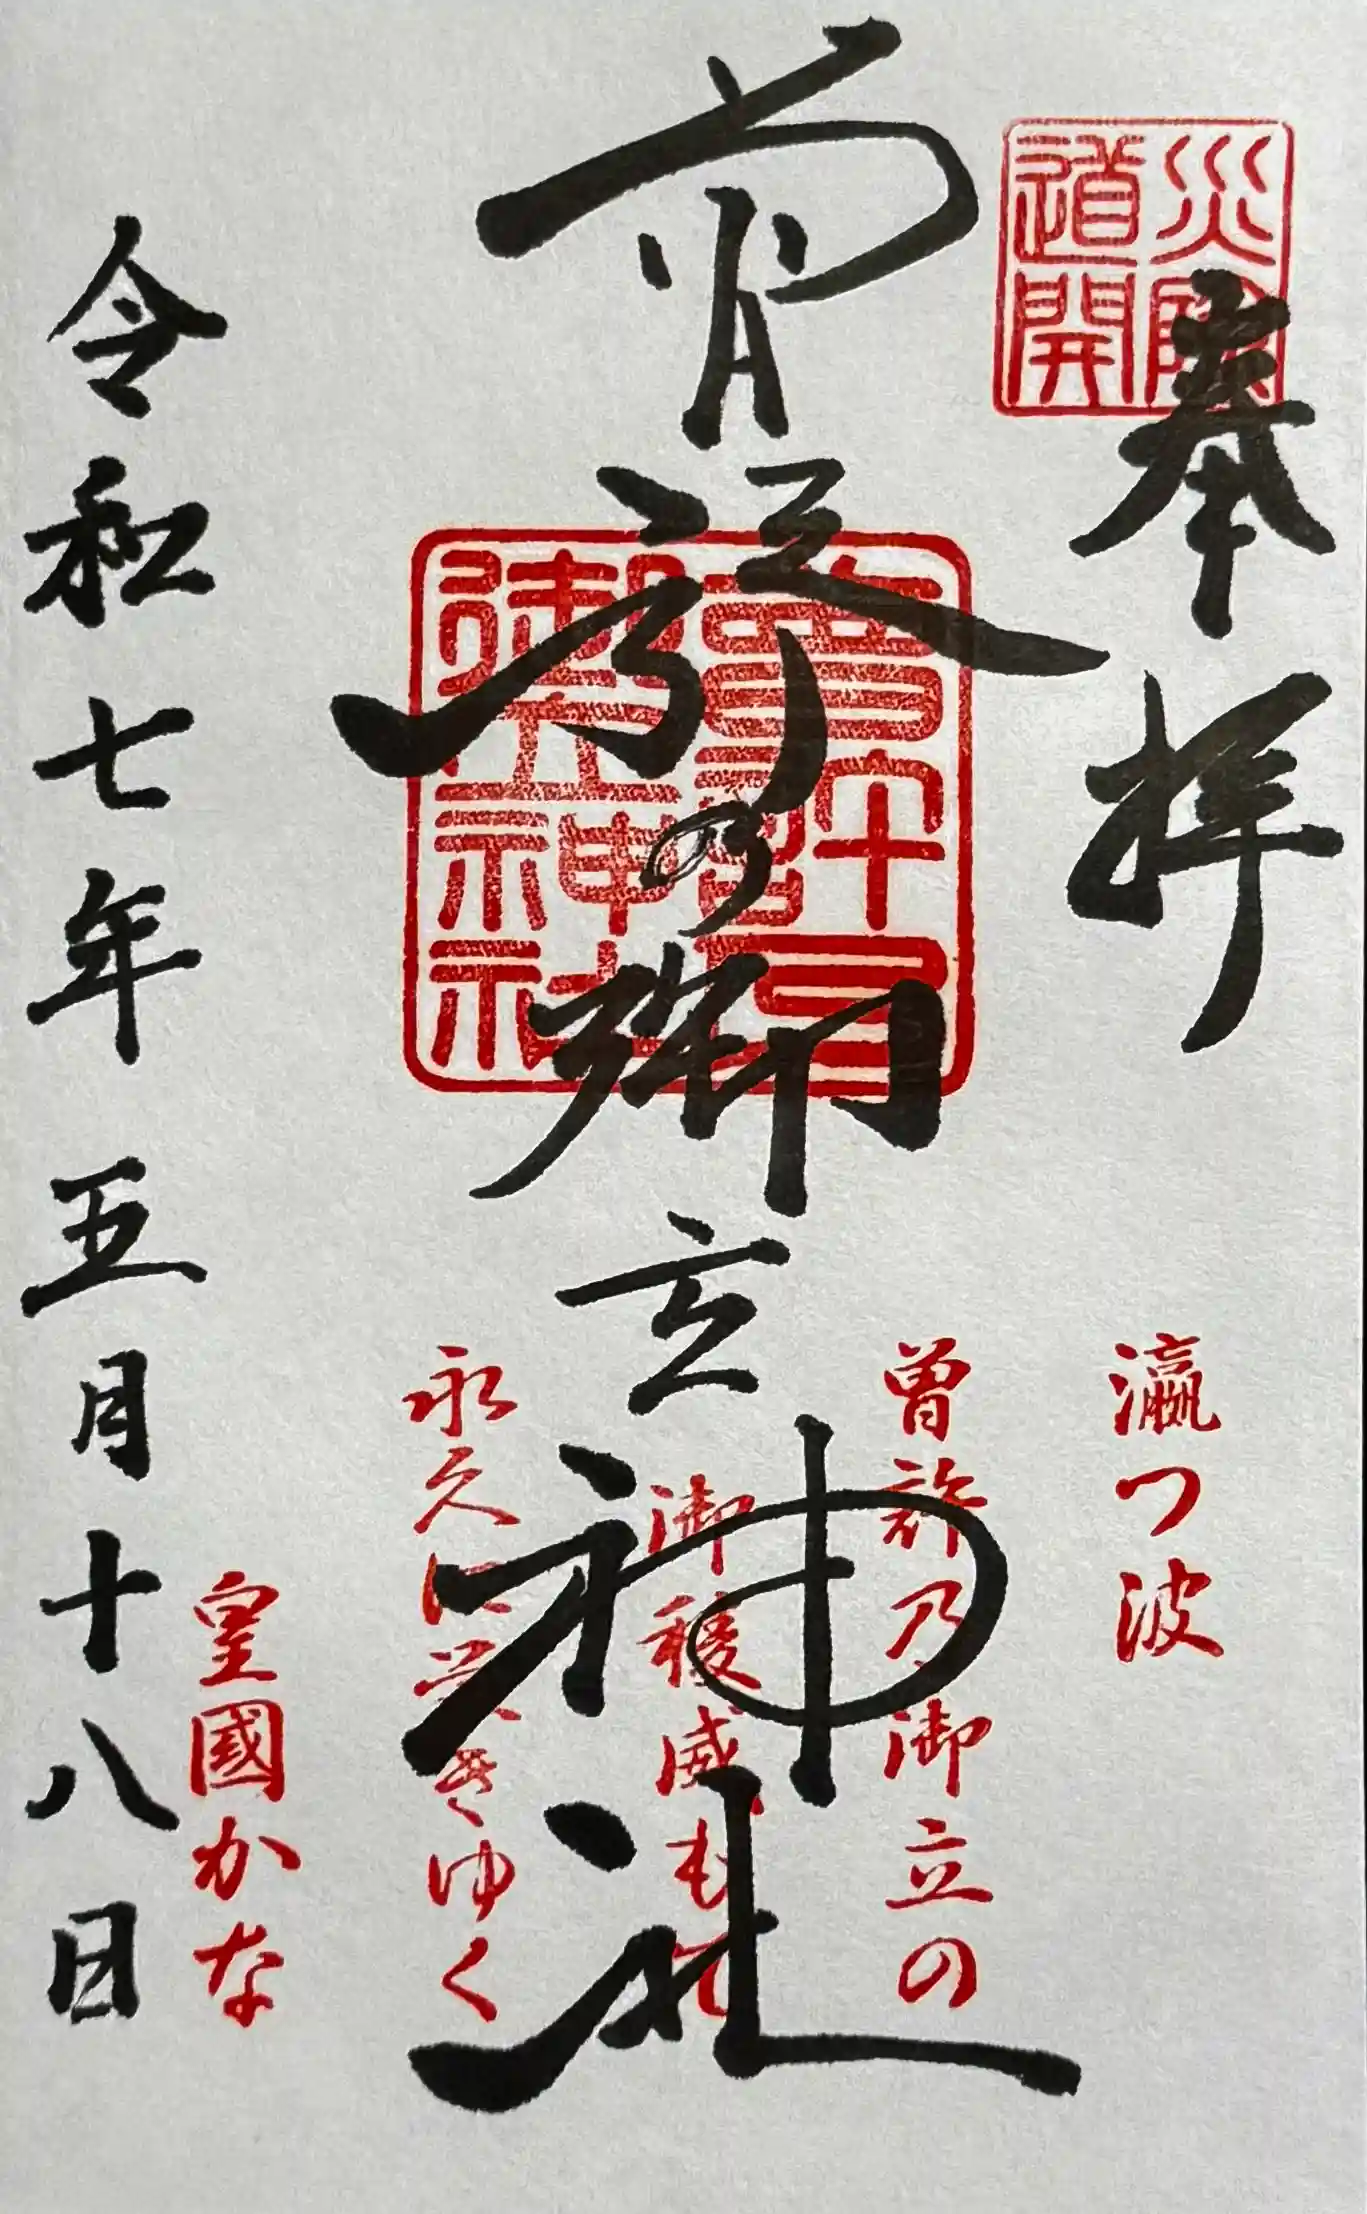 災除
道開
奉拝
瀛つ波
曽許乃御立の
曽許乃御立神社
御稜威もて
永久に栄きゆく
皇國かな
令和七年五月十八日